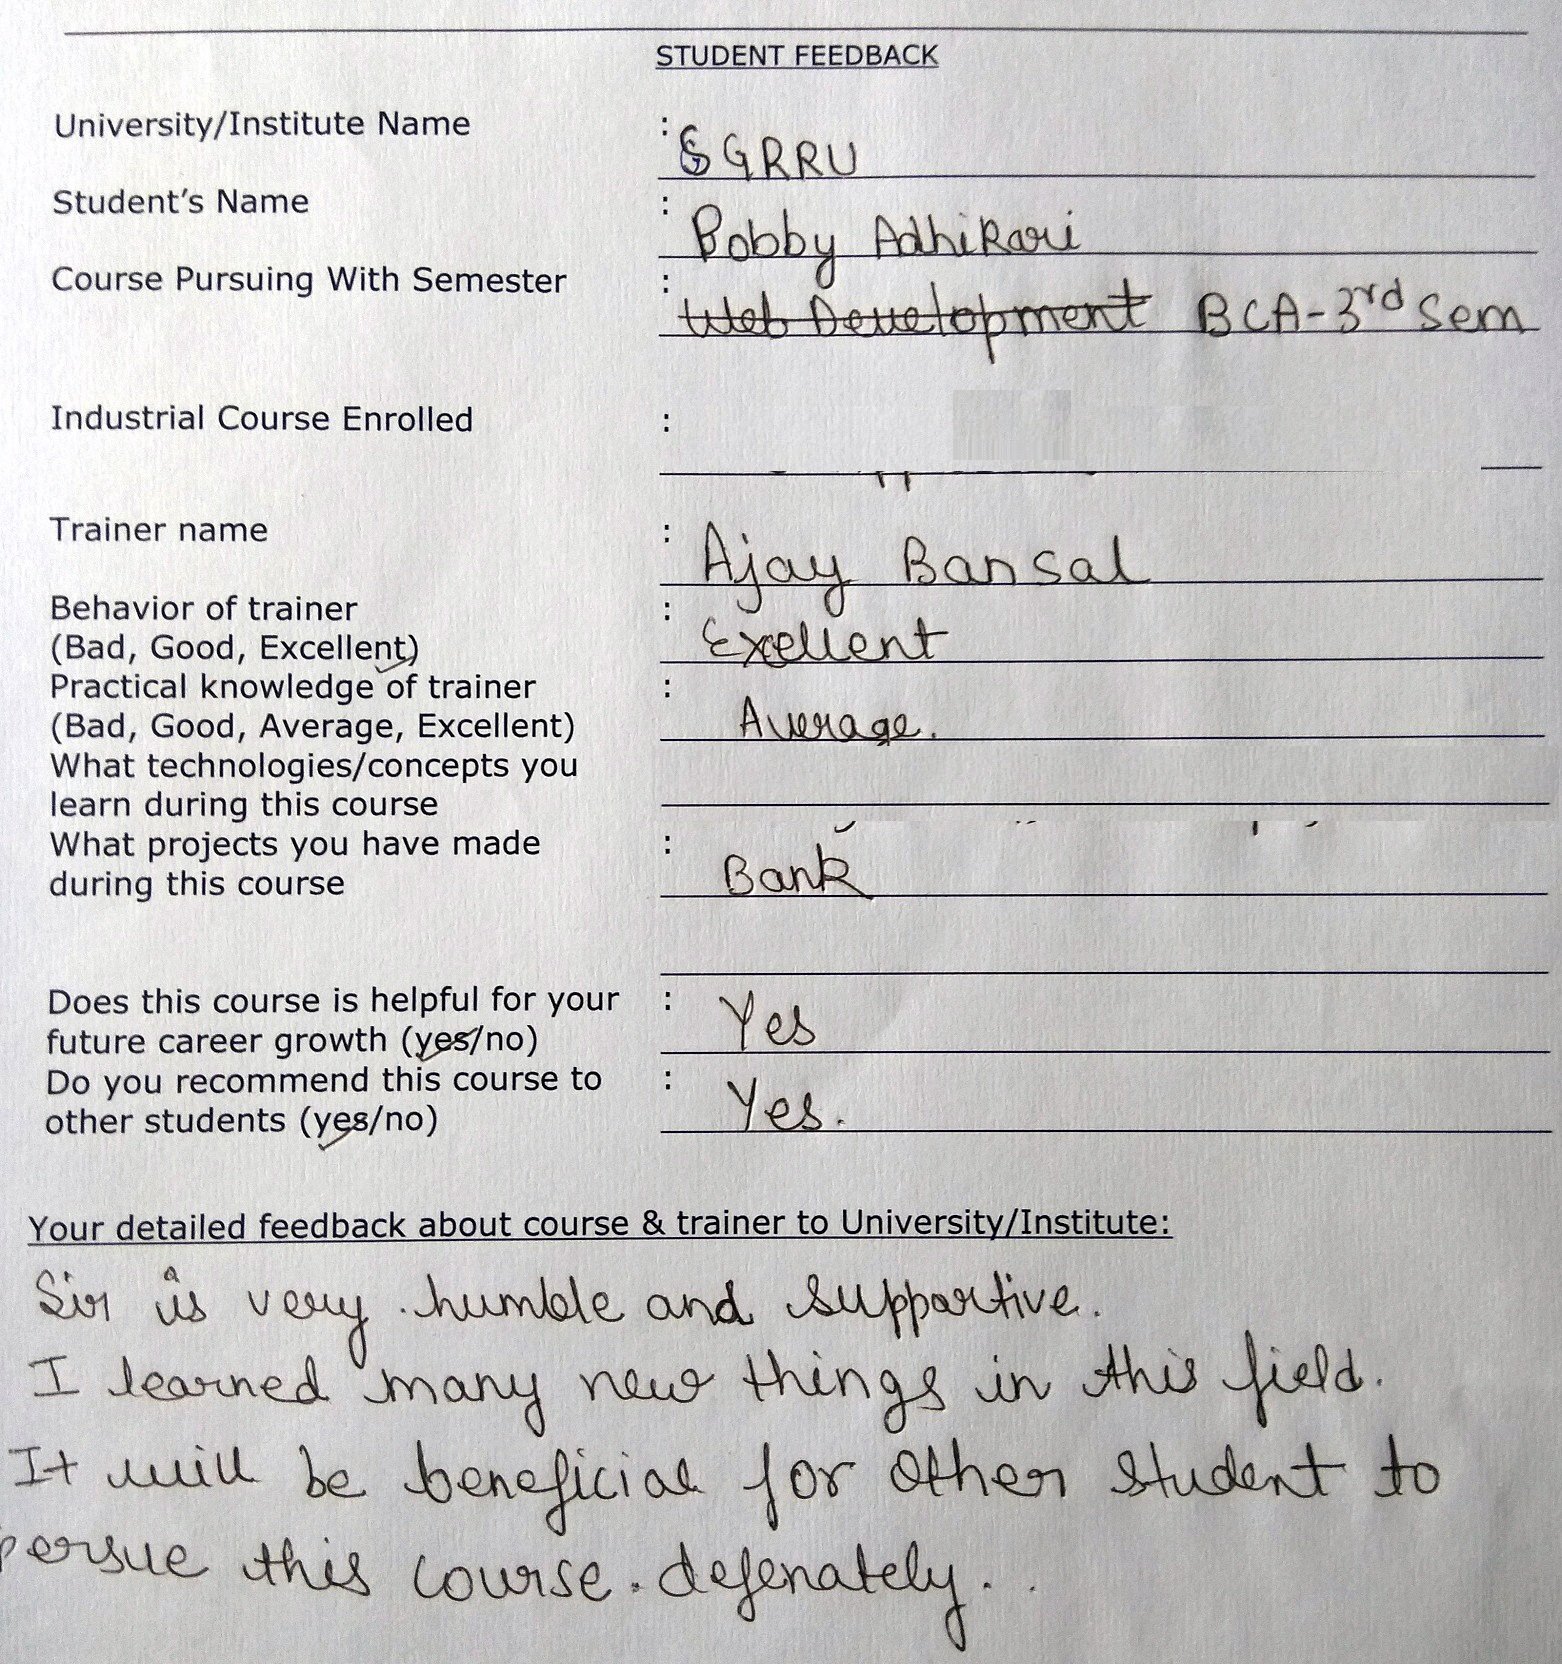 STUDENT FEEDBACK
University/Institute Name : SGRRU
Student's Name : Bobby Adhikari
Course Pursuing With Semester : Web Development BCA-3rd Sem
Industrial Course Enrolled :
Trainer name : Ajay Bansal
Behavior of trainer :
(Bad, Good, Excellent) Exellent
Practical knowledge of trainer :
(Bad, Good, Average, Excellent) Average.
What technologies/concepts you
learn during this course
What projects you have made :
during this course Bank
Does this course is helpful for your : Yes
future career growth (yes/no)
Do you recommend this course to : Yes.
other students (yes/no)
Your detailed feedback about course & trainer to University/Institute:
Sir is very humble and supportive.
I learned many new things in this field.
It will be beneficial for other student to
persue this course. defenately.